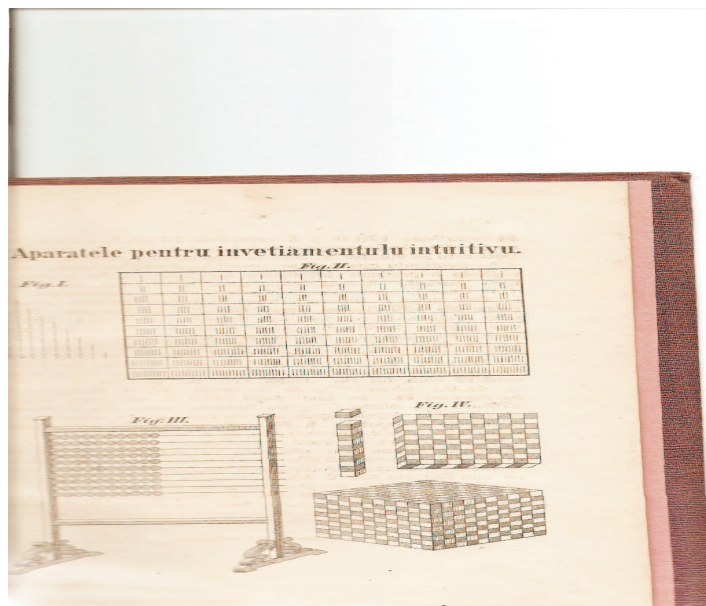 Aparatele pentru invetiamentulu intuitivu.
Fig. II.
Fig. I.
Fig. III.
Fig. IV.